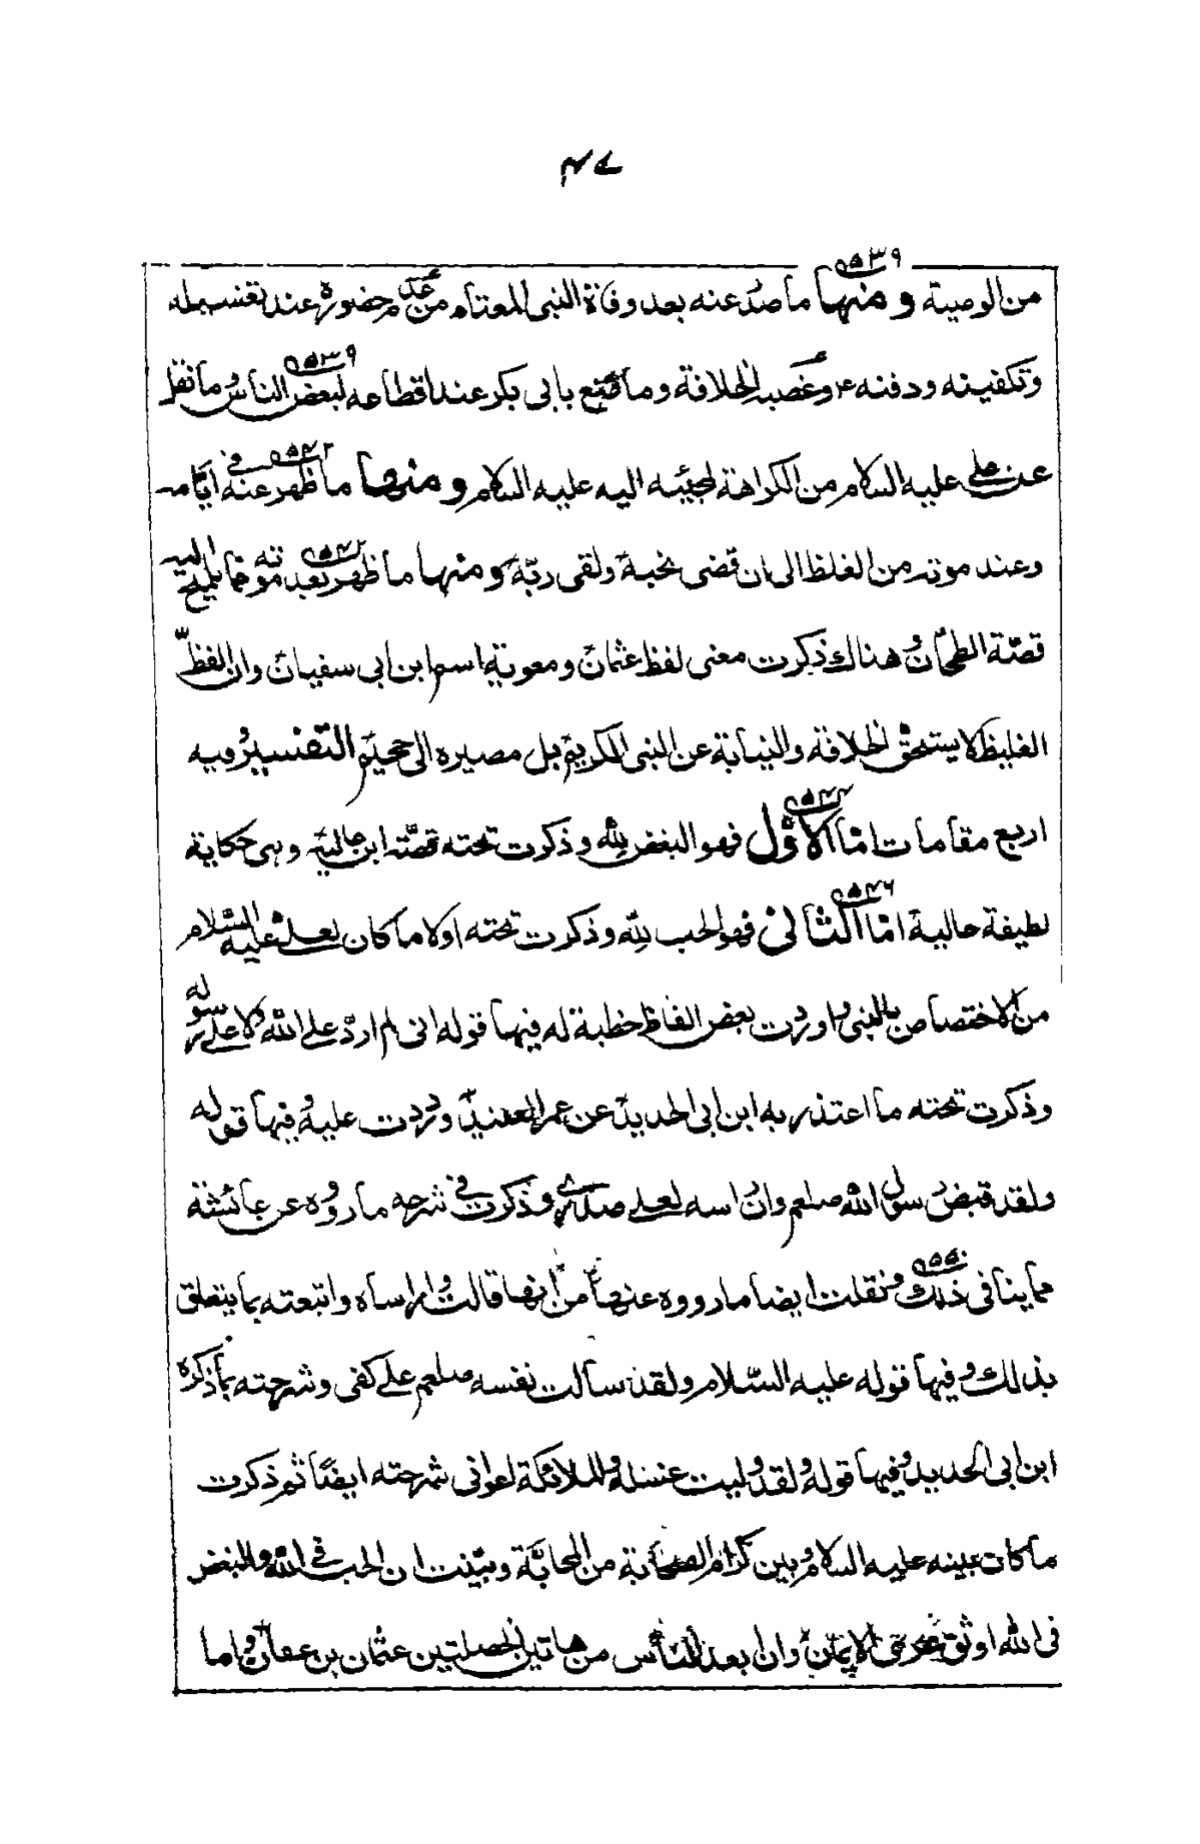 ٤٧
٩٥٣٩
من الوصية ومنها ما صدر عنه بعد وفاة النبي المعتام من عدم حضوره عند تغسيله
٩٥٣٩
وتكفينه ودفنه ٤ وغصبه الخلافة وما صنع بابي بكر عند اقطاعه لبعض الناس وما نقل
٩٥٤٢
عن علي عليه السلام من الكراهة لمجيئه اليه عليه السلام ومنها ما ظهر عنه في ايامه
وعند موته من الغلظ الى ان قضى نحبه ولقى ربه ومنها ما ظهر بعد موته مما يليح اليه
قصّة الطحان وهناك ذكرت معنى لفظ عثمان ومعوية اسم ابن ابي سفيان وان الفظّ
الغليظ لا يستحق الخلافة والنيابة عن النبي الكريم بل مصيره الى جحيم التفسير وفيه
٩٥٤٤
اربع مقامات امّا الاوّل فهو البغض لله وذكرت تحته قصّة ابن جالية وهي حكاية
٩٥٤٦
لطيفة حالية امّا الثاني فهو الحب لله وذكرت تحته اولا ما كان لعلي عليه السّلام
من الاختصاص بالنبي واوردت بعض الفاظ خطبة له فيها قوله اني لم اردّ على الله ولا على رسوله
وذكرت تحته ما اعتذر به ابن ابي الحديد عن عمر العنيد ورددت عليه وفيها قوله
ولقد قبض رسول الله صلعم وان راسه لعلى صدري وذكرت في شرحه ما رووه عن عائشة
٩٥٥٠
مما ينافي ذلك ونقلت ايضا ما رووه عنها من انها قالت وا راساه واتبعته بما يتعلق
بذلك وفيها قوله عليه السّلام ولقد سالت نفسه صلعم على كفي وشرحته بما ذكره
ابن ابي الحديد وفيها قوله ولقد وليت غسله والملائكة اعواني شرحته ايضًا ثم ذكرت
ما كان بينه عليه السلام وبين كرام الصحابة من المحابّة وبيّنت ان الحب في الله والبغض
في الله اوثق عرى الايمان وان ابعد الناس من هاتين الخصلتين عثمان بن عفان واما